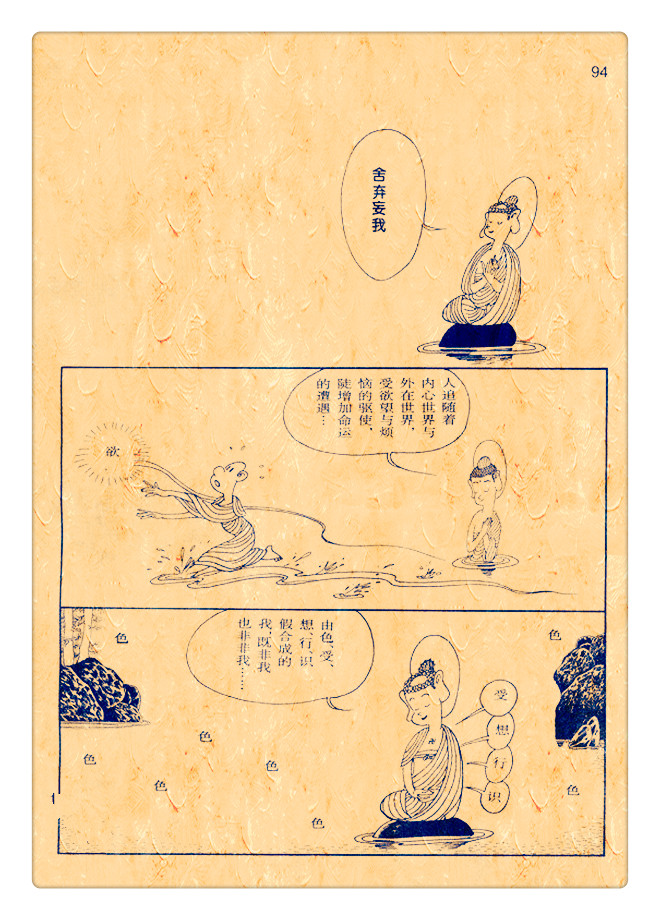 94
舍弃妄我
人追随着
内心世界与
外在世界，
受欲望与烦
恼的驱使，
陡增加命运
的遭遇…
欲
由色、受、
想、行、识
假合成的
我，既非我
也非非我……
色
色
受
想
行
识
色
色
色
色
色
色